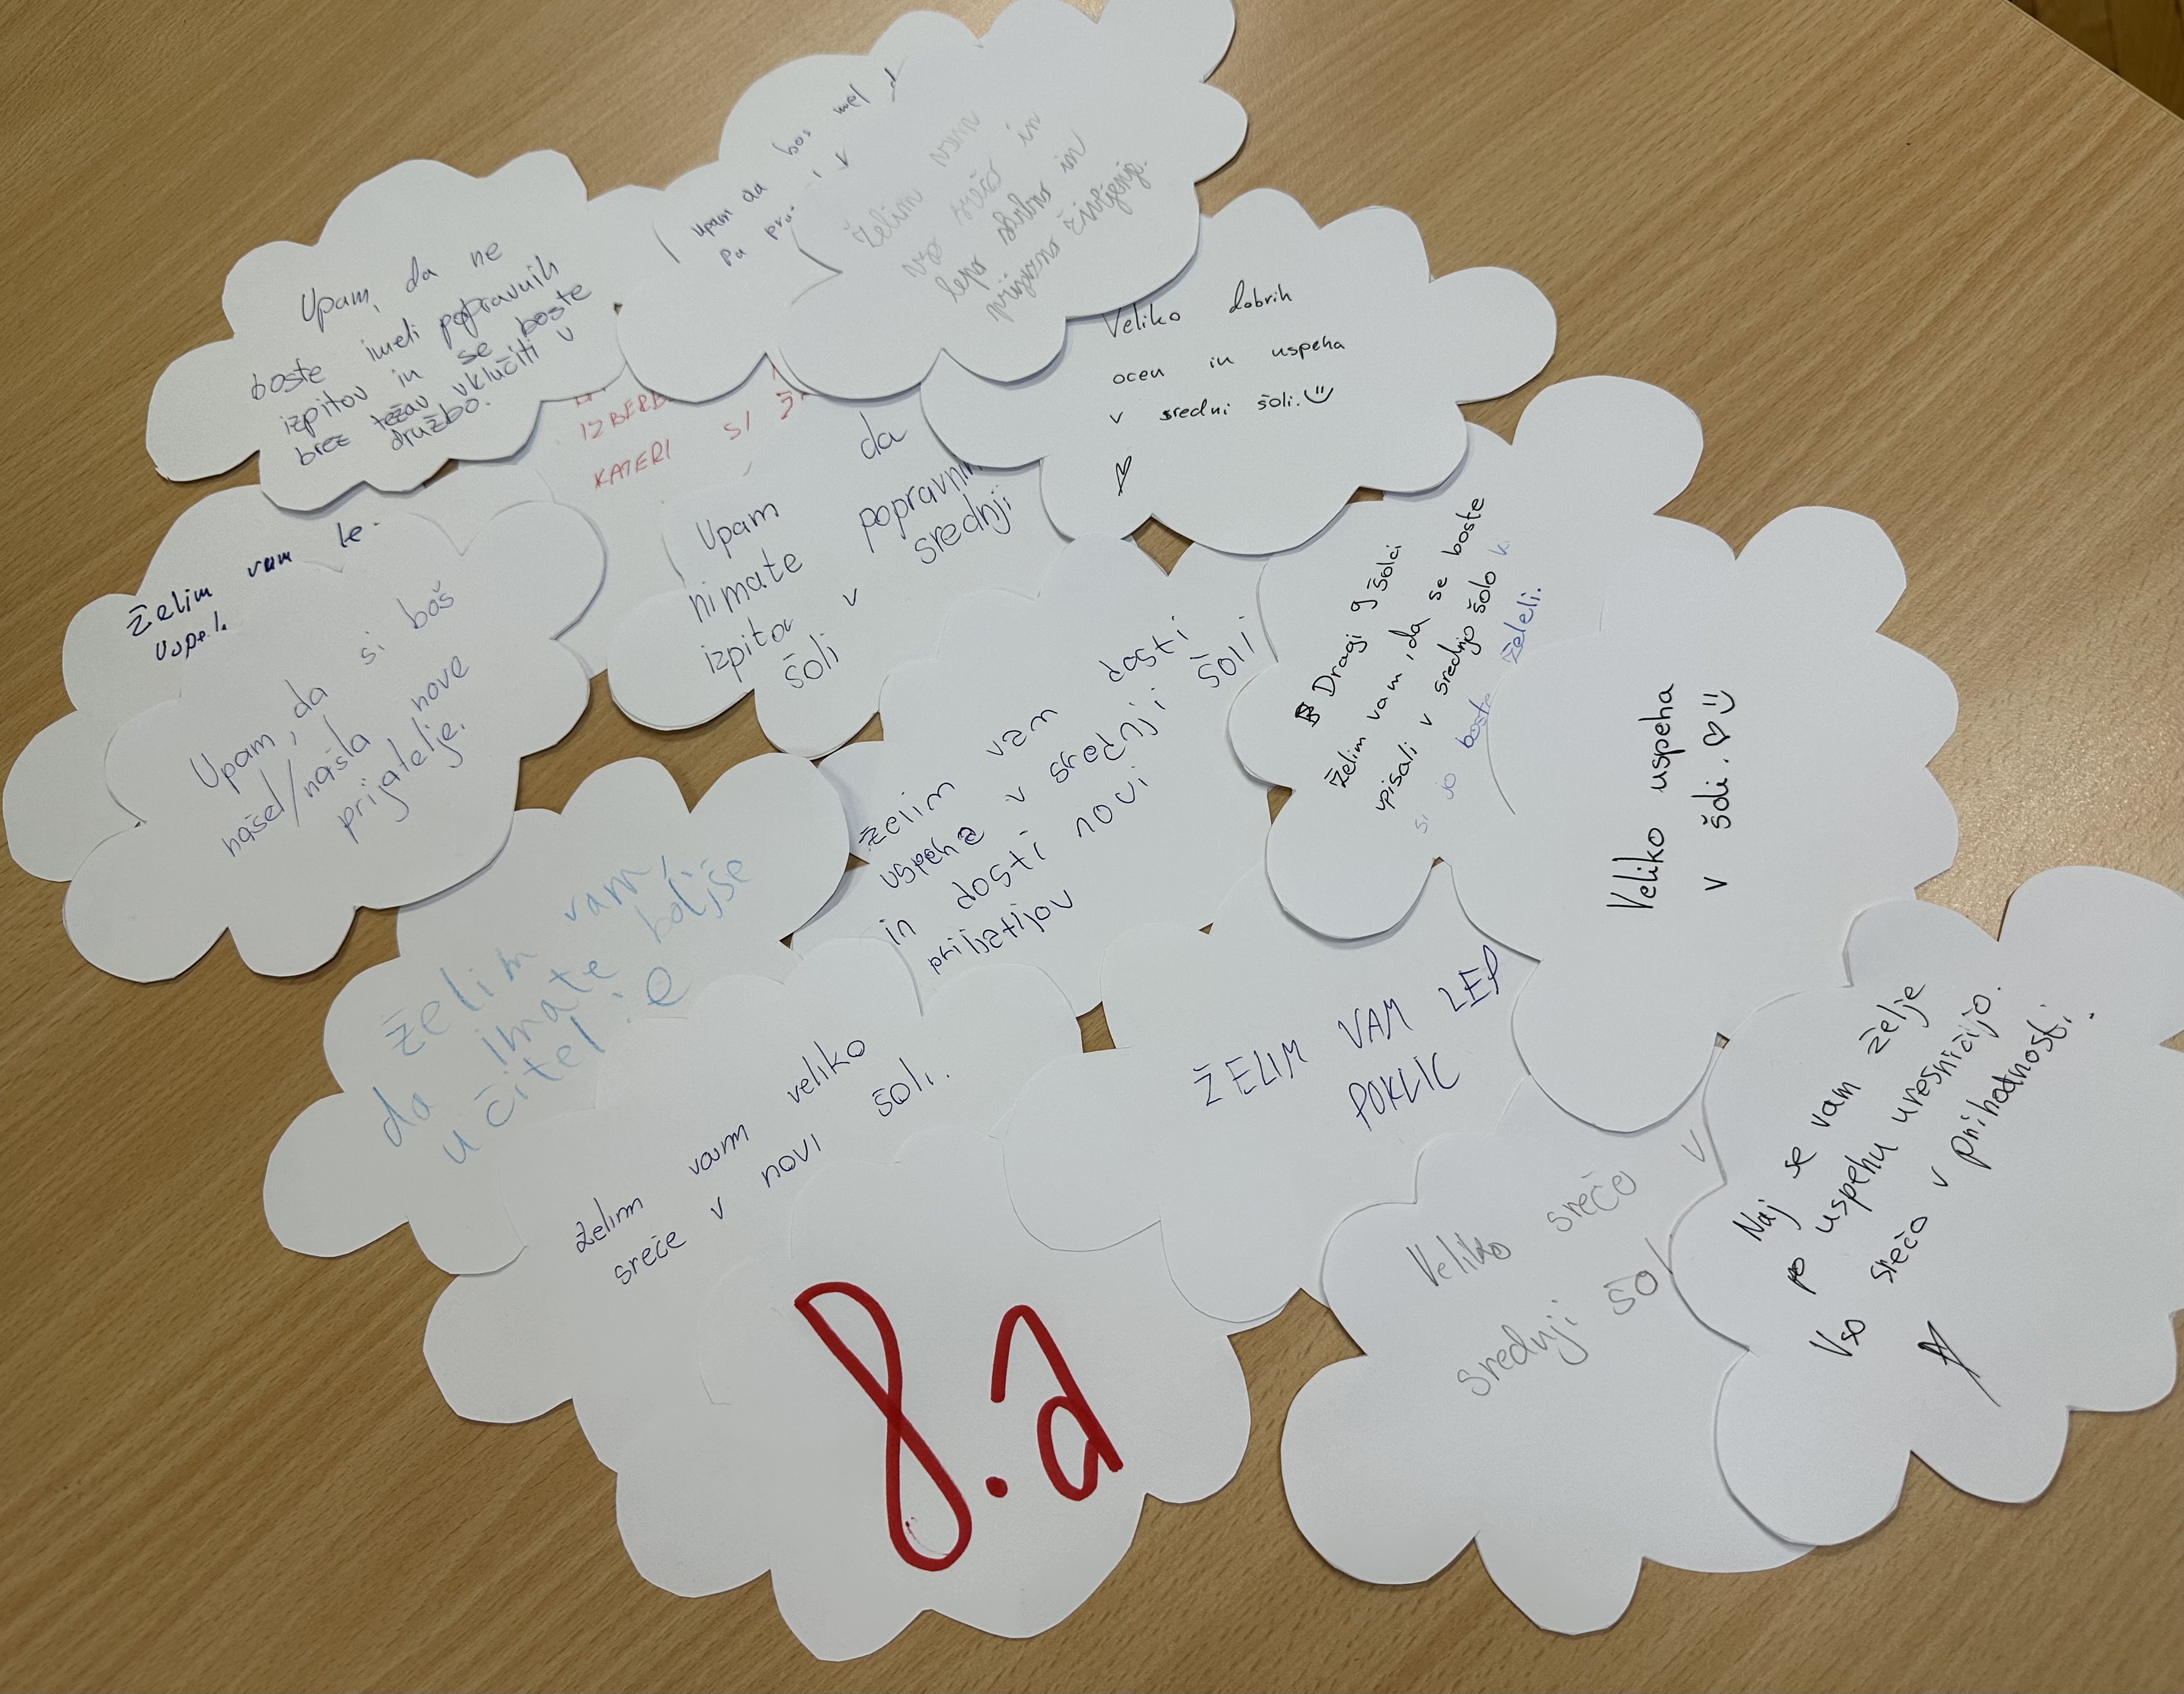 Upam, da ne
boste imeli popravnih
izpitov in se boste
brez težav vključiti v
družbo.
upam da boš mel
pa
Želim vam
vso srečo in
lepo skrbno in
prijazno življenje.
Veliko dobrih
ocen in uspeha
v sredni šoli.
KATERI SI
Upam da
nimate popravnih
izpitov v srednji
šoli
želim vam
Upam, da si boš
našel/našla nove
prijatelje.
Dragi 9 šolci
želim vam, da se boste
vpisali v srednjo šolo ki
si jo boste želeli.
želim van dosti
uspeha v srednji šoli
in dosti novi
priljatijov
Veliko uspeha
v šoli.
želim vam,
da imate boljše
učitelje
želim vam veliko
sreče v novi šoli.
ŽELIM VAM LEP
POKLIC
Naj se vam želje
po uspehu uresničijo.
Vso srečo v prihodnosti.
Veliko srečo v
srednji
8.a